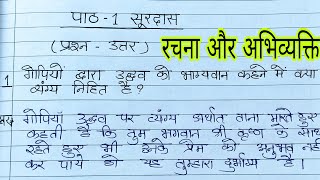 पाठ-1 सूरदास
(प्रश्न - उत्तर) रचना और अभिव्यक्ति
1 गोपियों द्वारा उद्धव को भाग्यवान कहने में क्या
व्यंग्य निहित है?
गोपियाँ उद्धव पर व्यंग्य अर्थात ताना मारते हुए
कहती हैं कि तुम भगवान श्री कृष्ण के साथ
रहते हुए भी इनके प्रेम को अनुभव नहीं
कर पाये हो यह तुम्हारा दुर्भाग्य है।